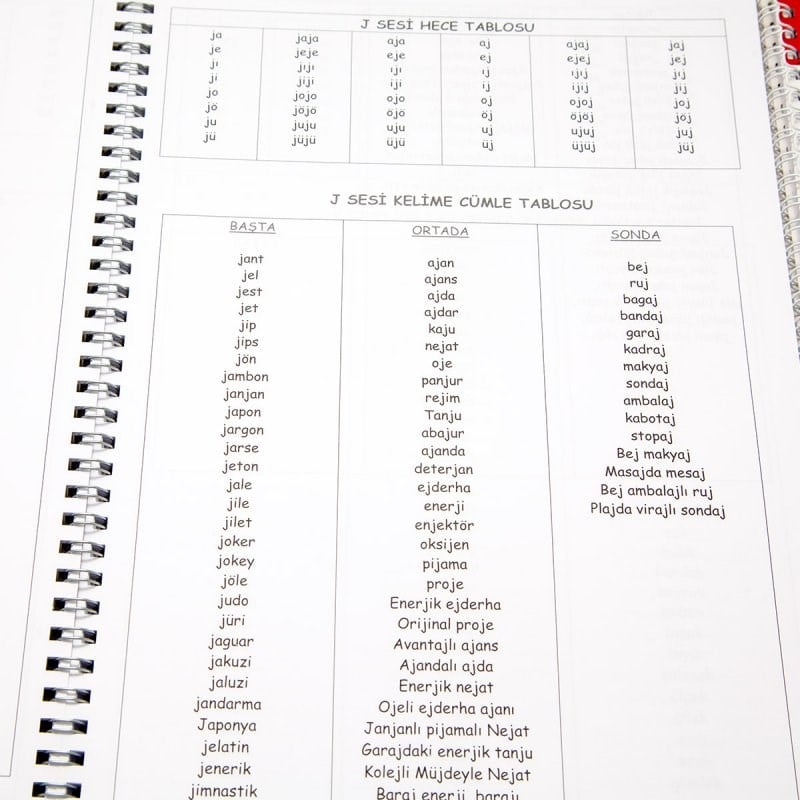 J SESİ HECE TABLOSU
ja jaja aja aj ajaj jaj
je jeje eje ej ejej jej
jı jıjı ıjı ıj ıjıj jıj
ji jiji iji ij ijij jij
jo jojo ojo oj ojoj joj
jö jöjö öjö öj öjöj jöj
ju juju uju uj ujuj juj
jü jüjü üjü üj üjüj jüj
J SESİ KELİME CÜMLE TABLOSU
BAŞTA
jant
jel
jest
jet
jip
jips
jön
jambon
janjan
japon
jargon
jarse
jeton
jale
jile
jilet
joker
jokey
jöle
judo
jüri
jaguar
jakuzi
jaluzi
jandarma
Japonya
jelatin
jenerik
jimnastik
ORTADA
ajan
ajans
ajda
ajdar
kaju
nejat
oje
panjur
rejim
Tanju
abajur
ajanda
deterjan
ejderha
enerji
enjektör
oksijen
pijama
proje
Enerjik ejderha
Orijinal proje
Avantajlı ajans
Ajandalı ajda
Enerjik nejat
Ojeli ejderha ajanı
Janjanlı pijamalı Nejat
Garajdaki enerjik tanju
Kolejli Müjdeyle Nejat
Baraj enerji barajı
SONDA
bej
ruj
bagaj
bandaj
garaj
kadraj
makyaj
sondaj
ambalaj
kabotaj
stopaj
Bej makyaj
Masajda mesaj
Bej ambalajlı ruj
Plajda virajlı sondaj